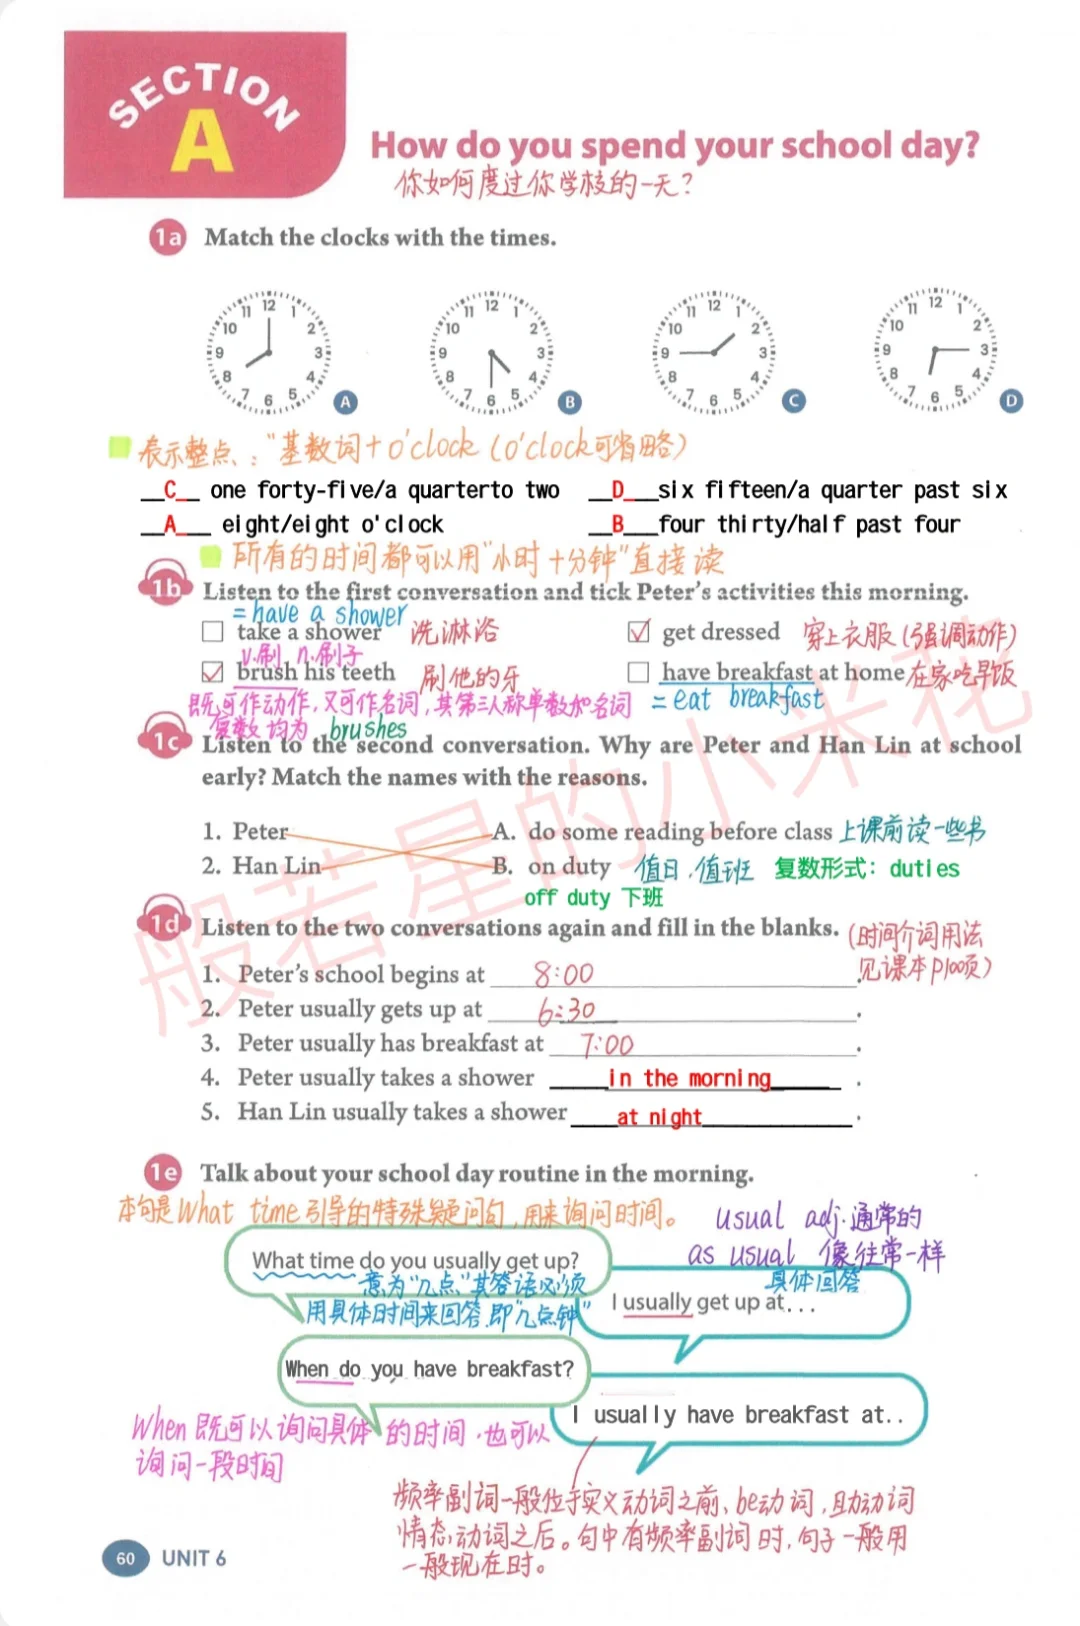 SECTION
A
How do you spend your school day?
你如何度过你学校的一天?
1a Match the clocks with the times.
12 1 2 3 4 5 6 7 8 9 10 11
A
12 1 2 3 4 5 6 7 8 9 10 11
B
12 1 2 3 4 5 6 7 8 9 10 11
C
12 1 2 3 4 5 6 7 8 9 10 11
D
表示整点:"基数词+o'clock (o'clock可省略)
__C__ one forty-five/a quarterto two __D___six fifteen/a quarter past six
__A___ eight/eight o'clock __B___four thirty/half past four
所有的时间都可以用"小时+分钟"直接读
1b Listen to the first conversation and tick Peter's activities this morning.
=have a shower
take a shower 洗淋浴 get dressed 穿上衣服(强调动作)
v.刷 n.刷子
brush his teeth 刷他的牙 have breakfast at home 在家吃早饭
既可作动作,又可作名词,其第三人称单数和名词 =eat breakfast
复数均为 brushes
1c Listen to the second conversation. Why are Peter and Han Lin at school
early? Match the names with the reasons.
1. Peter A. do some reading before class 上课前读一些书
2. Han Lin B. on duty 值日,值班 复数形式: duties
off duty 下班
1d Listen to the two conversations again and fill in the blanks. (时间介词用法
见课本P100页)
1. Peter's school begins at 8:00.
2. Peter usually gets up at 6:30.
3. Peter usually has breakfast at 7:00.
4. Peter usually takes a shower in the morning.
5. Han Lin usually takes a shower at night.
1e Talk about your school day routine in the morning.
本句是What time引导的特殊疑问句,用来询问时间。 usual adj.通常的
as usual 像往常一样
What time do you usually get up?
意为"几点"其答语必须 具体回答
用具体时间来回答.即"几点钟" I usually get up at...
When do you have breakfast?
I usually have breakfast at..
When既可以询问具体的时间,也可以
询问一段时间
频率副词一般位于实义动词之前、be动词,助动词
情态动词之后。句中有频率副词时,句子一般用
一般现在时。
60 UNIT 6
般若星的小米花